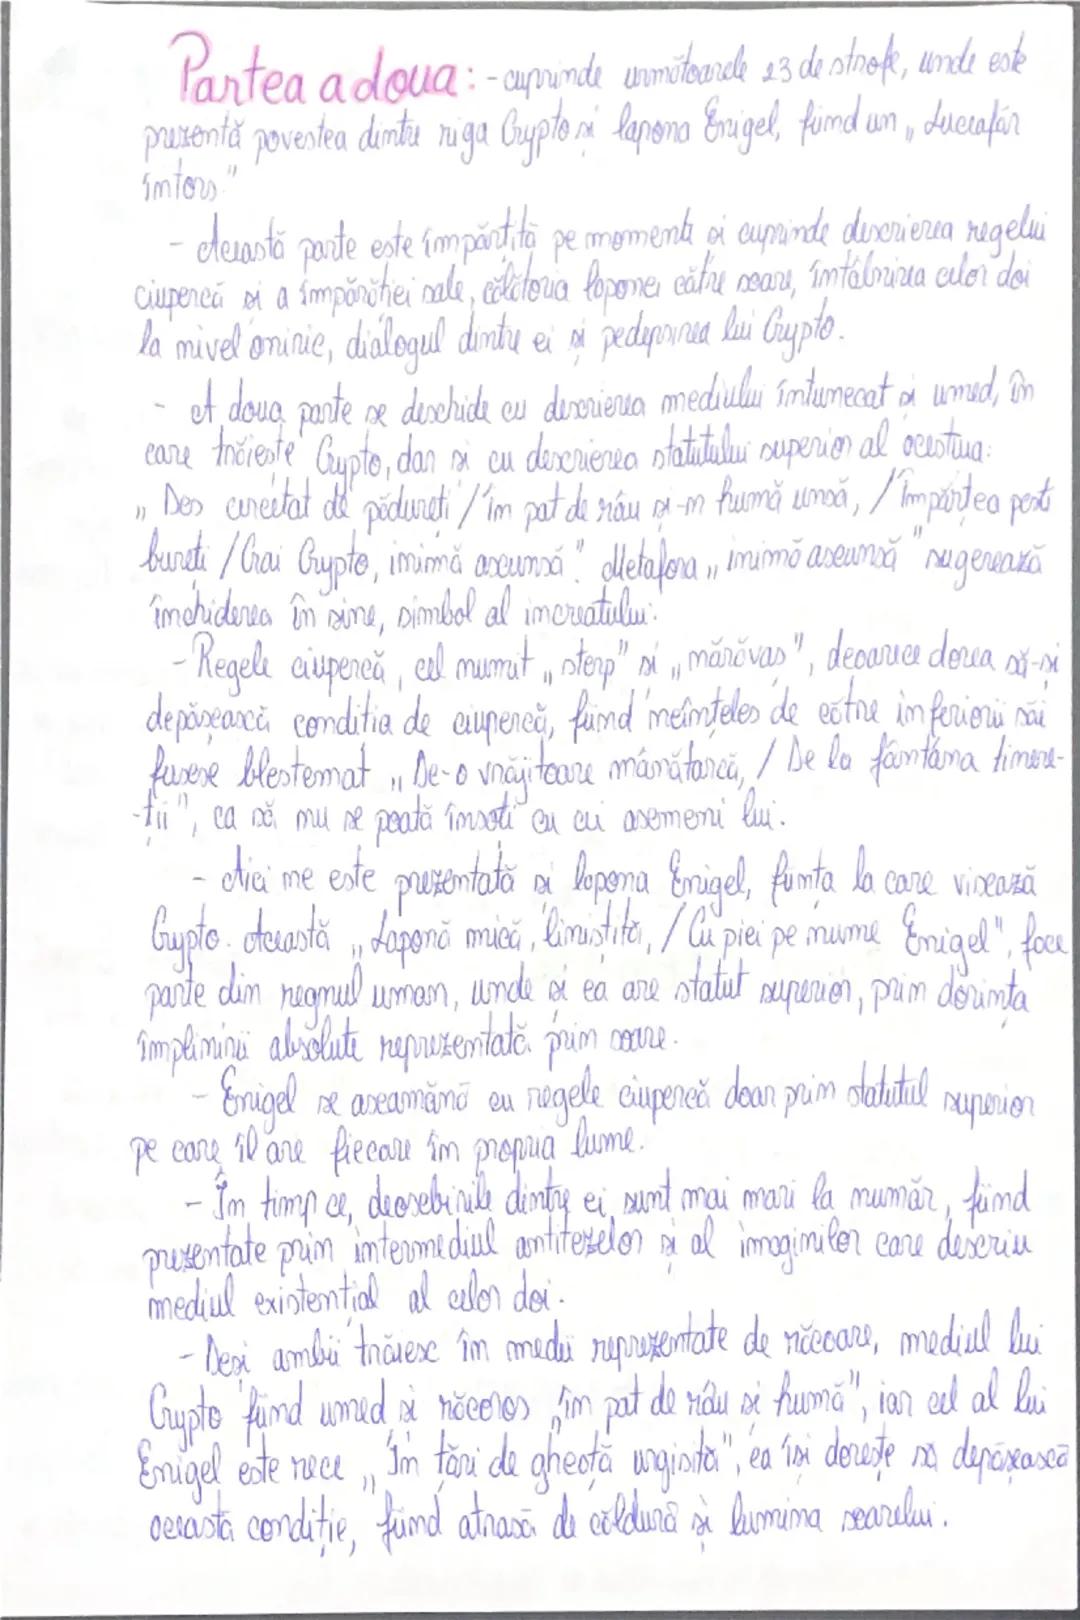 Partea a doua: - cuprinde următoarele 23 de strofe, unde este
prezentă povestea dintre riga Crypto și lapona Enigel, fiind un „Luceafăr
întors"
- Această parte este împărțită pe momente și cuprinde descrierea regelui
ciupercă și a împărăției sale, călătoria laponei către soare, întâlnirea celor doi
la nivel oniric, dialogul dintre ei și pedepsirea lui Crypto.
- A doua parte se deschide cu descrierea mediului întunecat și umed, în
care trăiește Crypto, dar și cu descrierea statutului superior al acestuia:
„Des cercetat de pădureți / În pat de râu și-n humă unsă, / Împărțea peste
bureți / Crai Crypto, inimă ascunsă". Metafora „inimă ascunsă" sugerează
închiderea în sine, simbol al increatului.
- Regele ciupercă, cel numit „sterp" și „mărăvas", deoarece dorea să-și
depășească condiția de ciupercă, fiind neînțeles de către inferiorii săi
fusese blestemat „De-o vrăjitoare mânătarcă, / De la fântâna tinere-
-ții", ca să nu se poată însoți cu cei asemeni lui.
- Aici ne este prezentată și lapona Enigel, ființa la care visează
Crypto. Această „Laponă mică, liniștită, / Cu piei pe nume Enigel", face
parte din regnul uman, unde și ea are statut superior, prin dorința
împlinirii absolute reprezentată prin soare.
- Enigel se aseamănă cu regele ciupercă doar prin statutul superior
pe care îl are fiecare în propria lume.
- În timp ce, deosebirile dintre ei sunt mai mari la număr, fiind
prezentate prin intermediul antitezelor și al imaginilor care descriu
mediul existențial al celor doi.
- Deși ambii trăiesc în medii reprezentate de răcoare, mediul lui
Crypto fiind umed și răcoros „în pat de râu și humă", iar cel al lui
Enigel este rece „În țări de gheață urgisită", ea își dorește să depășească
această condiție, fiind atrasă de căldură și lumina soarelui.